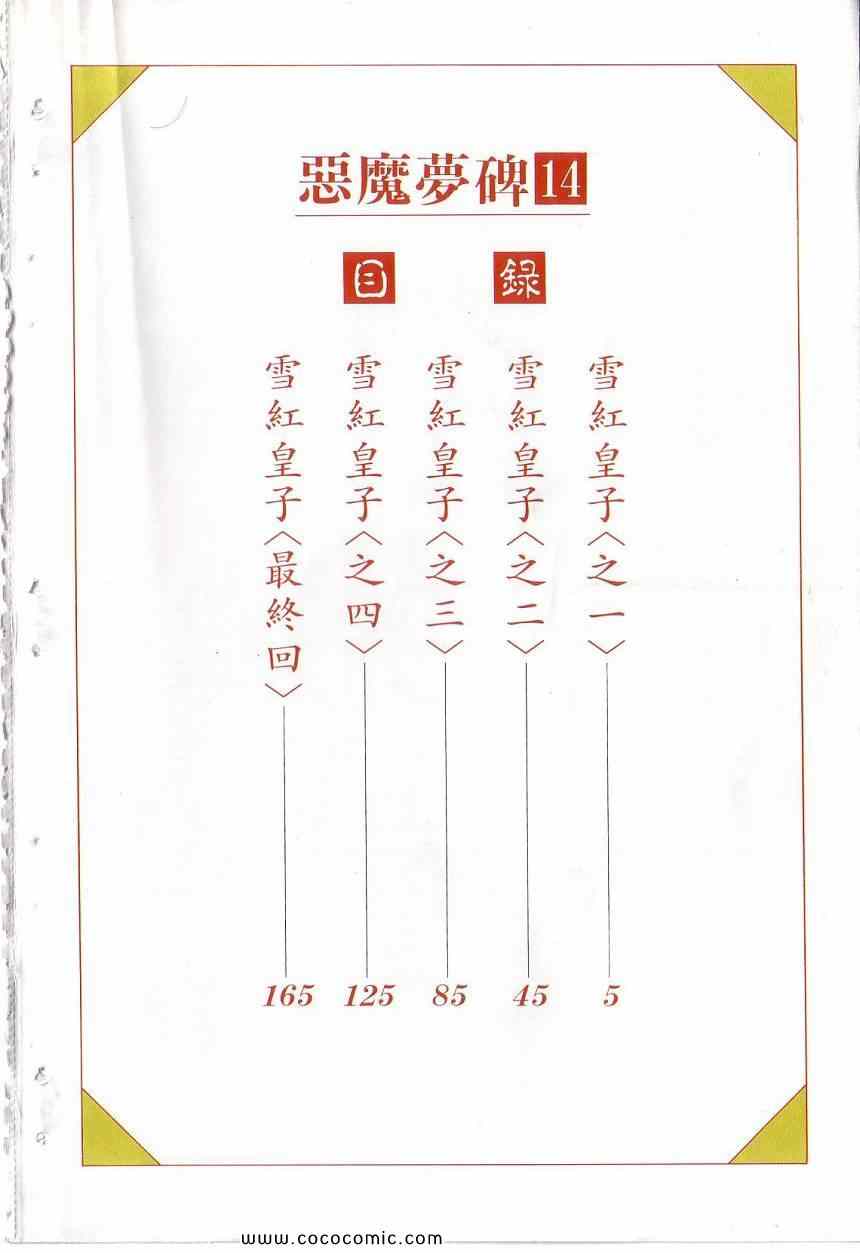 惡魔夢碑14
目錄
雪紅皇子〈之一〉 5
雪紅皇子〈之二〉 45
雪紅皇子〈之三〉 85
雪紅皇子〈之四〉 125
雪紅皇子〈最終回〉 165
www.cococomic.com